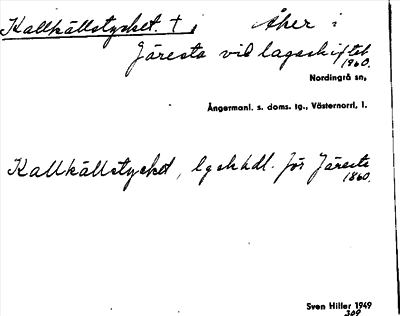 Kallkällstycket. †, Åker i
Järesta vid lagaskiftet
1860.
Nordingrå sn,
Ångermanl. s. doms. tg., Västernorrl. l.
Kallkällstycket, lgskhdl. för Järesta
1860.
Sven Hiller 1949
309